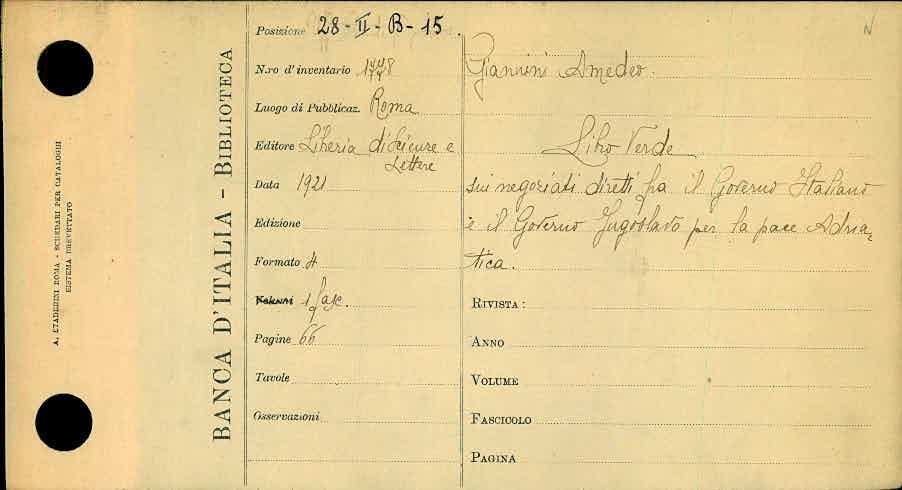 A. STADERINI ROMA - SCHEDARI PER CATALOGHI
SISTEMA BREVETTATO
BANCA D'ITALIA - BIBLIOTECA
Posizione 28-II-B-15.
N.ro d'inventario 1778
Luogo di Pubblicaz. Roma
Editore Libreria di Scienze e
Lettere
Data 1921
Edizione
Formato 4
1 fasc.
Pagine 66
Tavole
Osservazioni
N
Giannini Amedeo.
Libro Verde
sui negoziati diretti fra il Governo Italiano
e il Governo Jugoslavo per la pace Adria-
tica.
RIVISTA:
ANNO
VOLUME
FASCICOLO
PAGINA